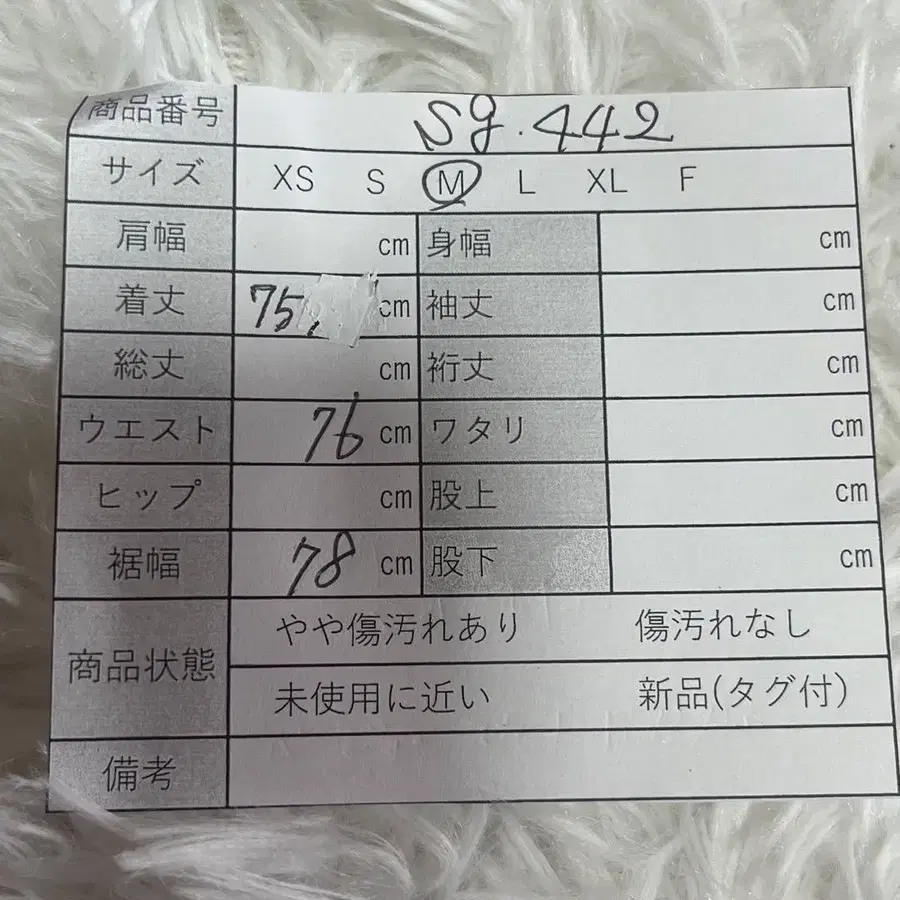 商品番号 Sg.442
サイズ XS S M L XL F
肩幅 cm 身幅 cm
着丈 75. cm 袖丈 cm
総丈 cm 裄丈 cm
ウエスト 76 cm ワタリ cm
ヒップ cm 股上 cm
裾幅 78 cm 股下 cm
商品状態 やや傷汚れあり 傷汚れなし
未使用に近い 新品(タグ付)
備考